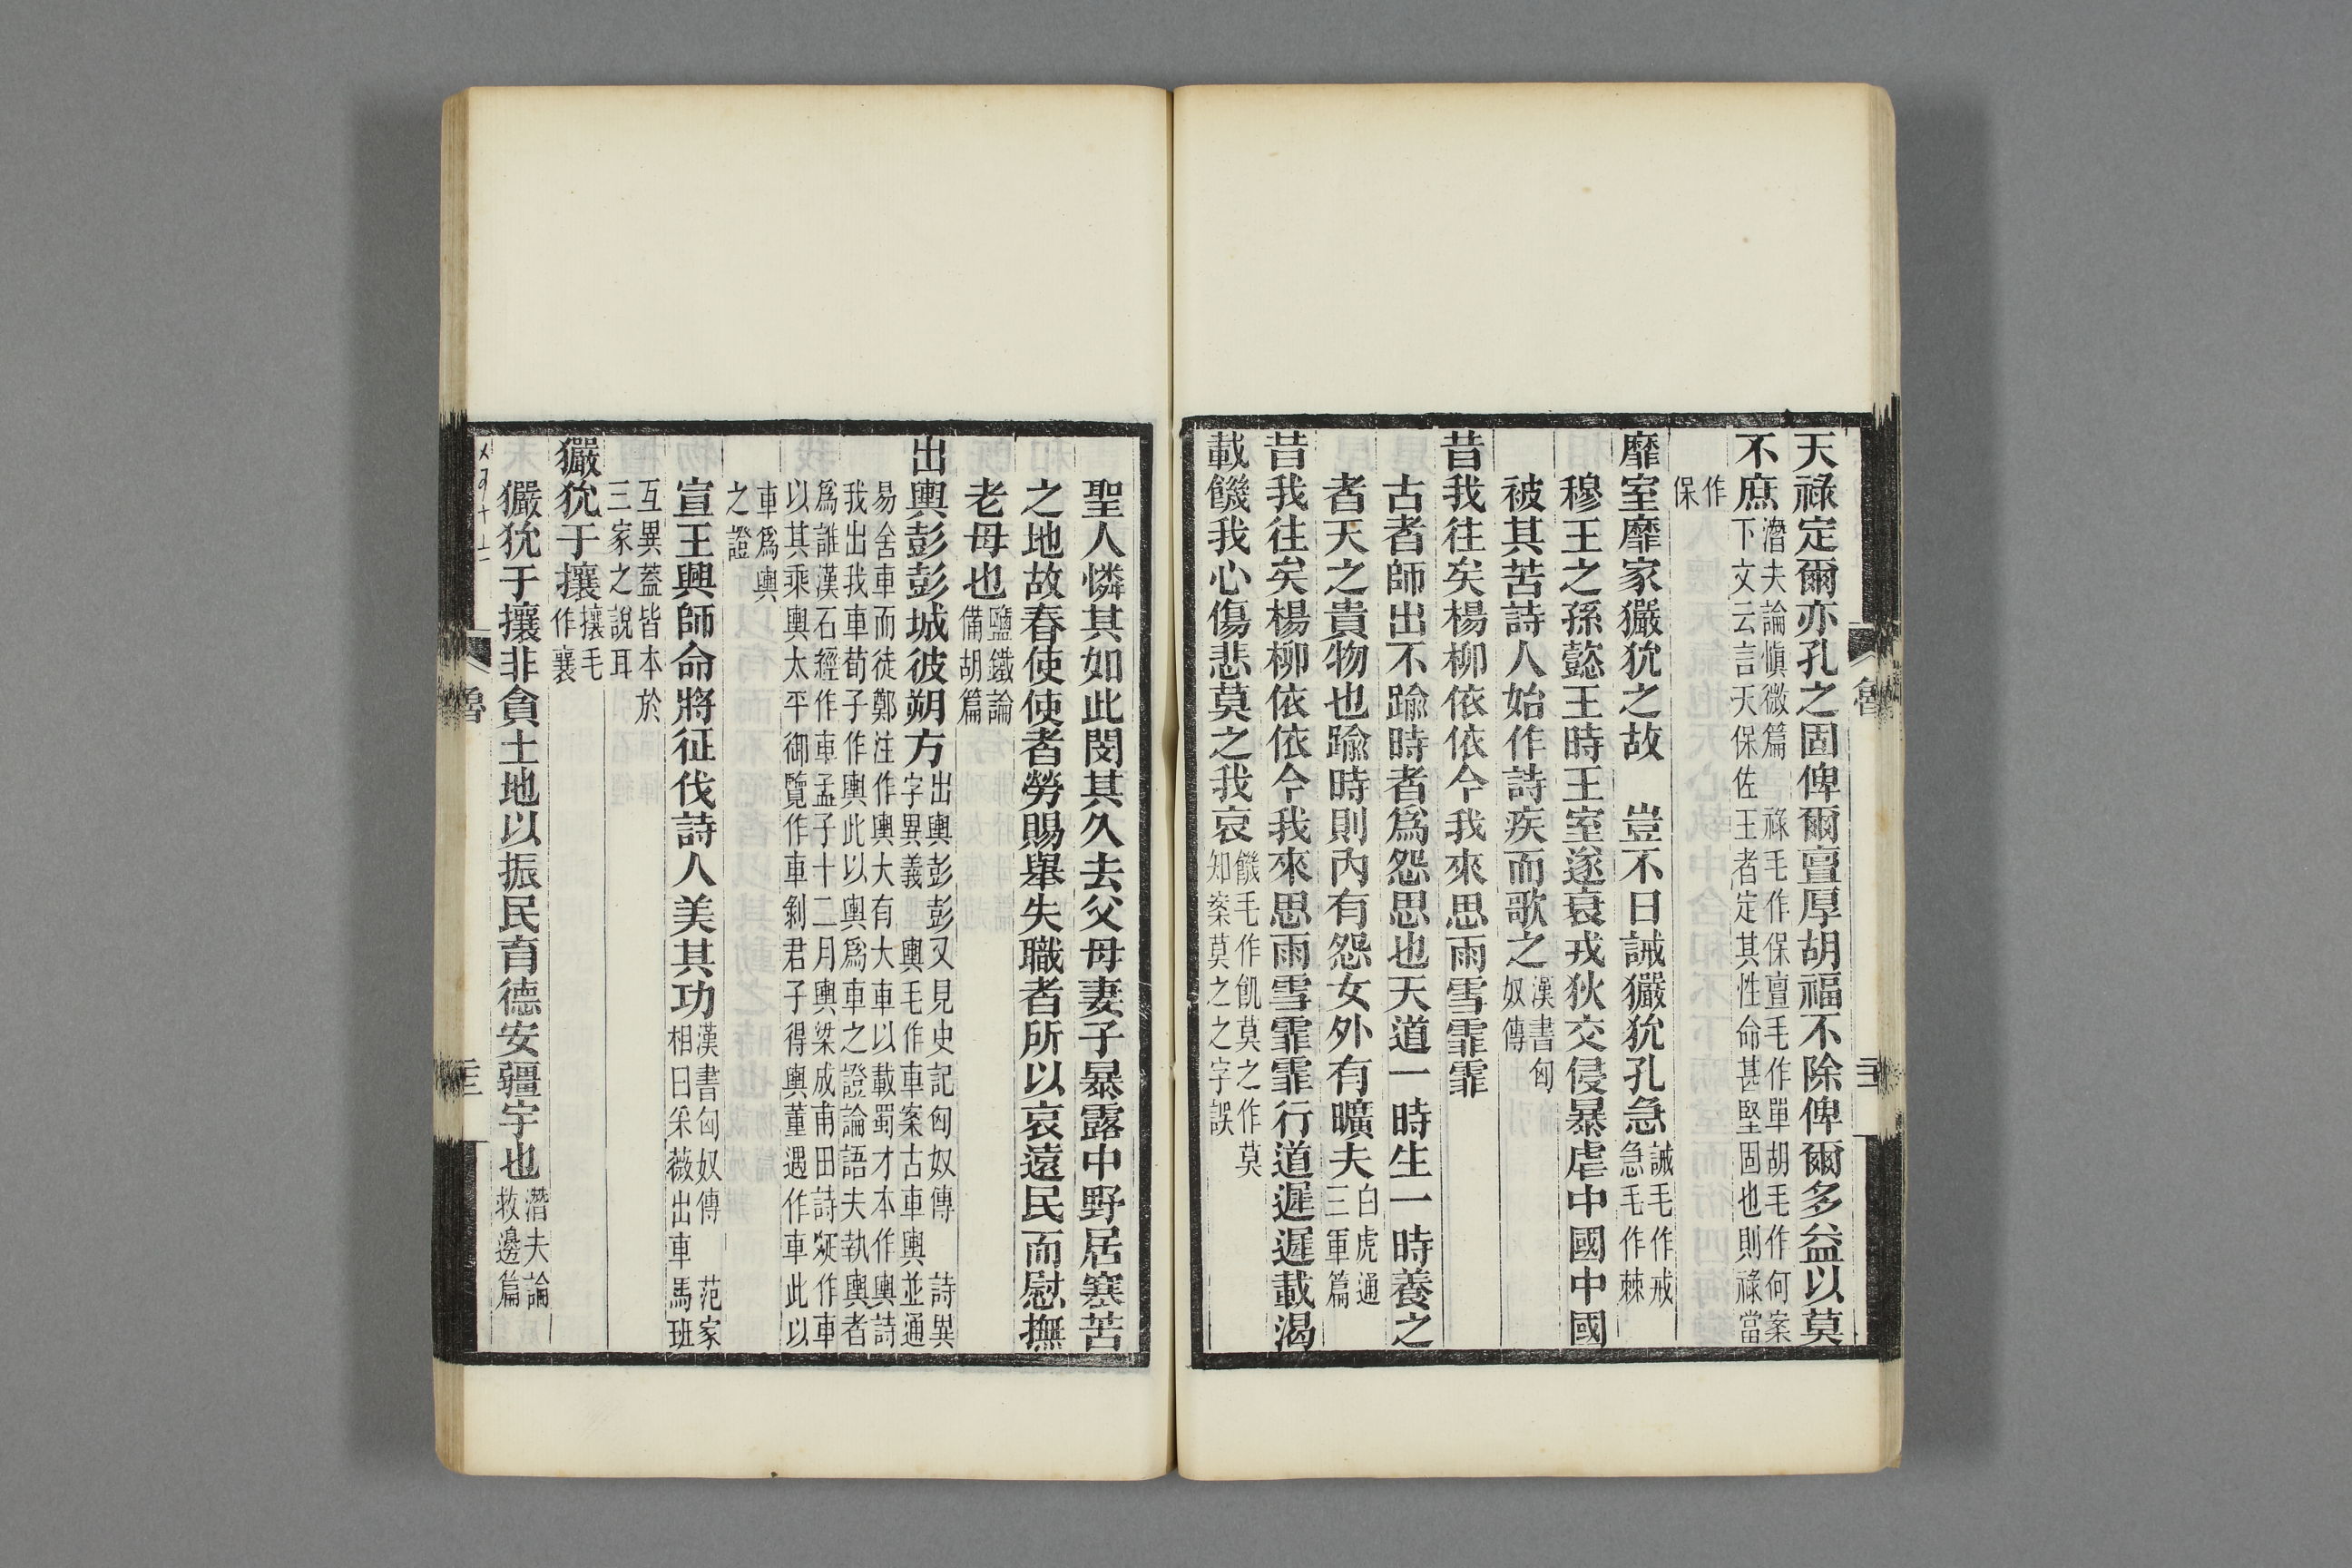 天祿定爾亦孔之固俾爾亶厚胡福不除俾爾多益以莫
不庶潛夫論愼微篇 祿毛作保亶毛作單胡毛作何案
下文云言天保佐王者定其性命甚堅固也則祿當
作
保
靡室靡家玁狁之故 豈不日誡玁狁孔急誡毛作戒
急毛作棘
穆王之孫懿王時王室遂衰戎狄交侵暴虐中國中國
被其苦詩人始作詩疾而歌之漢書匈
奴傳
昔我往矣楊柳依依今我來思雨雪霏霏
古者師出不踰時者爲怨思也天道一時生一時養之
者天之貴物也踰時則內有怨女外有曠夫白虎通
三軍篇
昔我往矣楊柳依依今我來思雨雪霏霏行道遲遲載渴
載饑我心傷悲莫之我哀饑毛作飢莫之作莫
知案莫之之字誤
聖人憐其如此閔其久去父母妻子暴露中野居寒苦
之地故春使使者勞賜舉失職者所以哀遠民而慰撫
老母也鹽鐵論
備胡篇
出輿彭彭城彼朔方出輿彭彭又見史記匈奴傳 詩異
字異義 輿毛作車案古車輿並通
易舍車而徒鄭注作輿大有大車以載蜀才本作輿詩
我出我車荀子作輿此以輿爲車之證論語夫執輿者
爲誰漢石經作車孟子十二月輿梁成甫田詩疏作車
以其乘輿太平御覽作車剝君子得輿董遇作車此以
車爲輿
之證
宣王興師命將征伐詩人美其功漢書匈奴傳 范家
相曰采薇出車馬班
互異蓋皆本於
三家之說耳
玁狁于攘攘毛
作襄
玁狁于攘非貪土地以振民育德安疆宇也潛夫論
救邊篇
魯